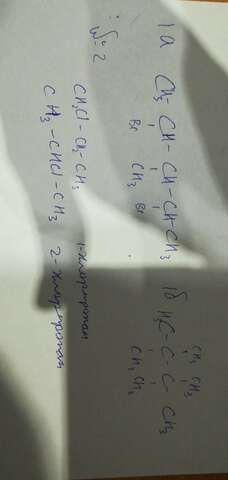 CH3 CH3
1а CH3-CH-CH-CH-CH3 1б H3C-C-C-CH3
Br CH3 Br CH3 CH3
№2
CH2Cl-CH2-CH3 1-хлорпропан
CH3-CHCl-CH3 2-хлорпропан